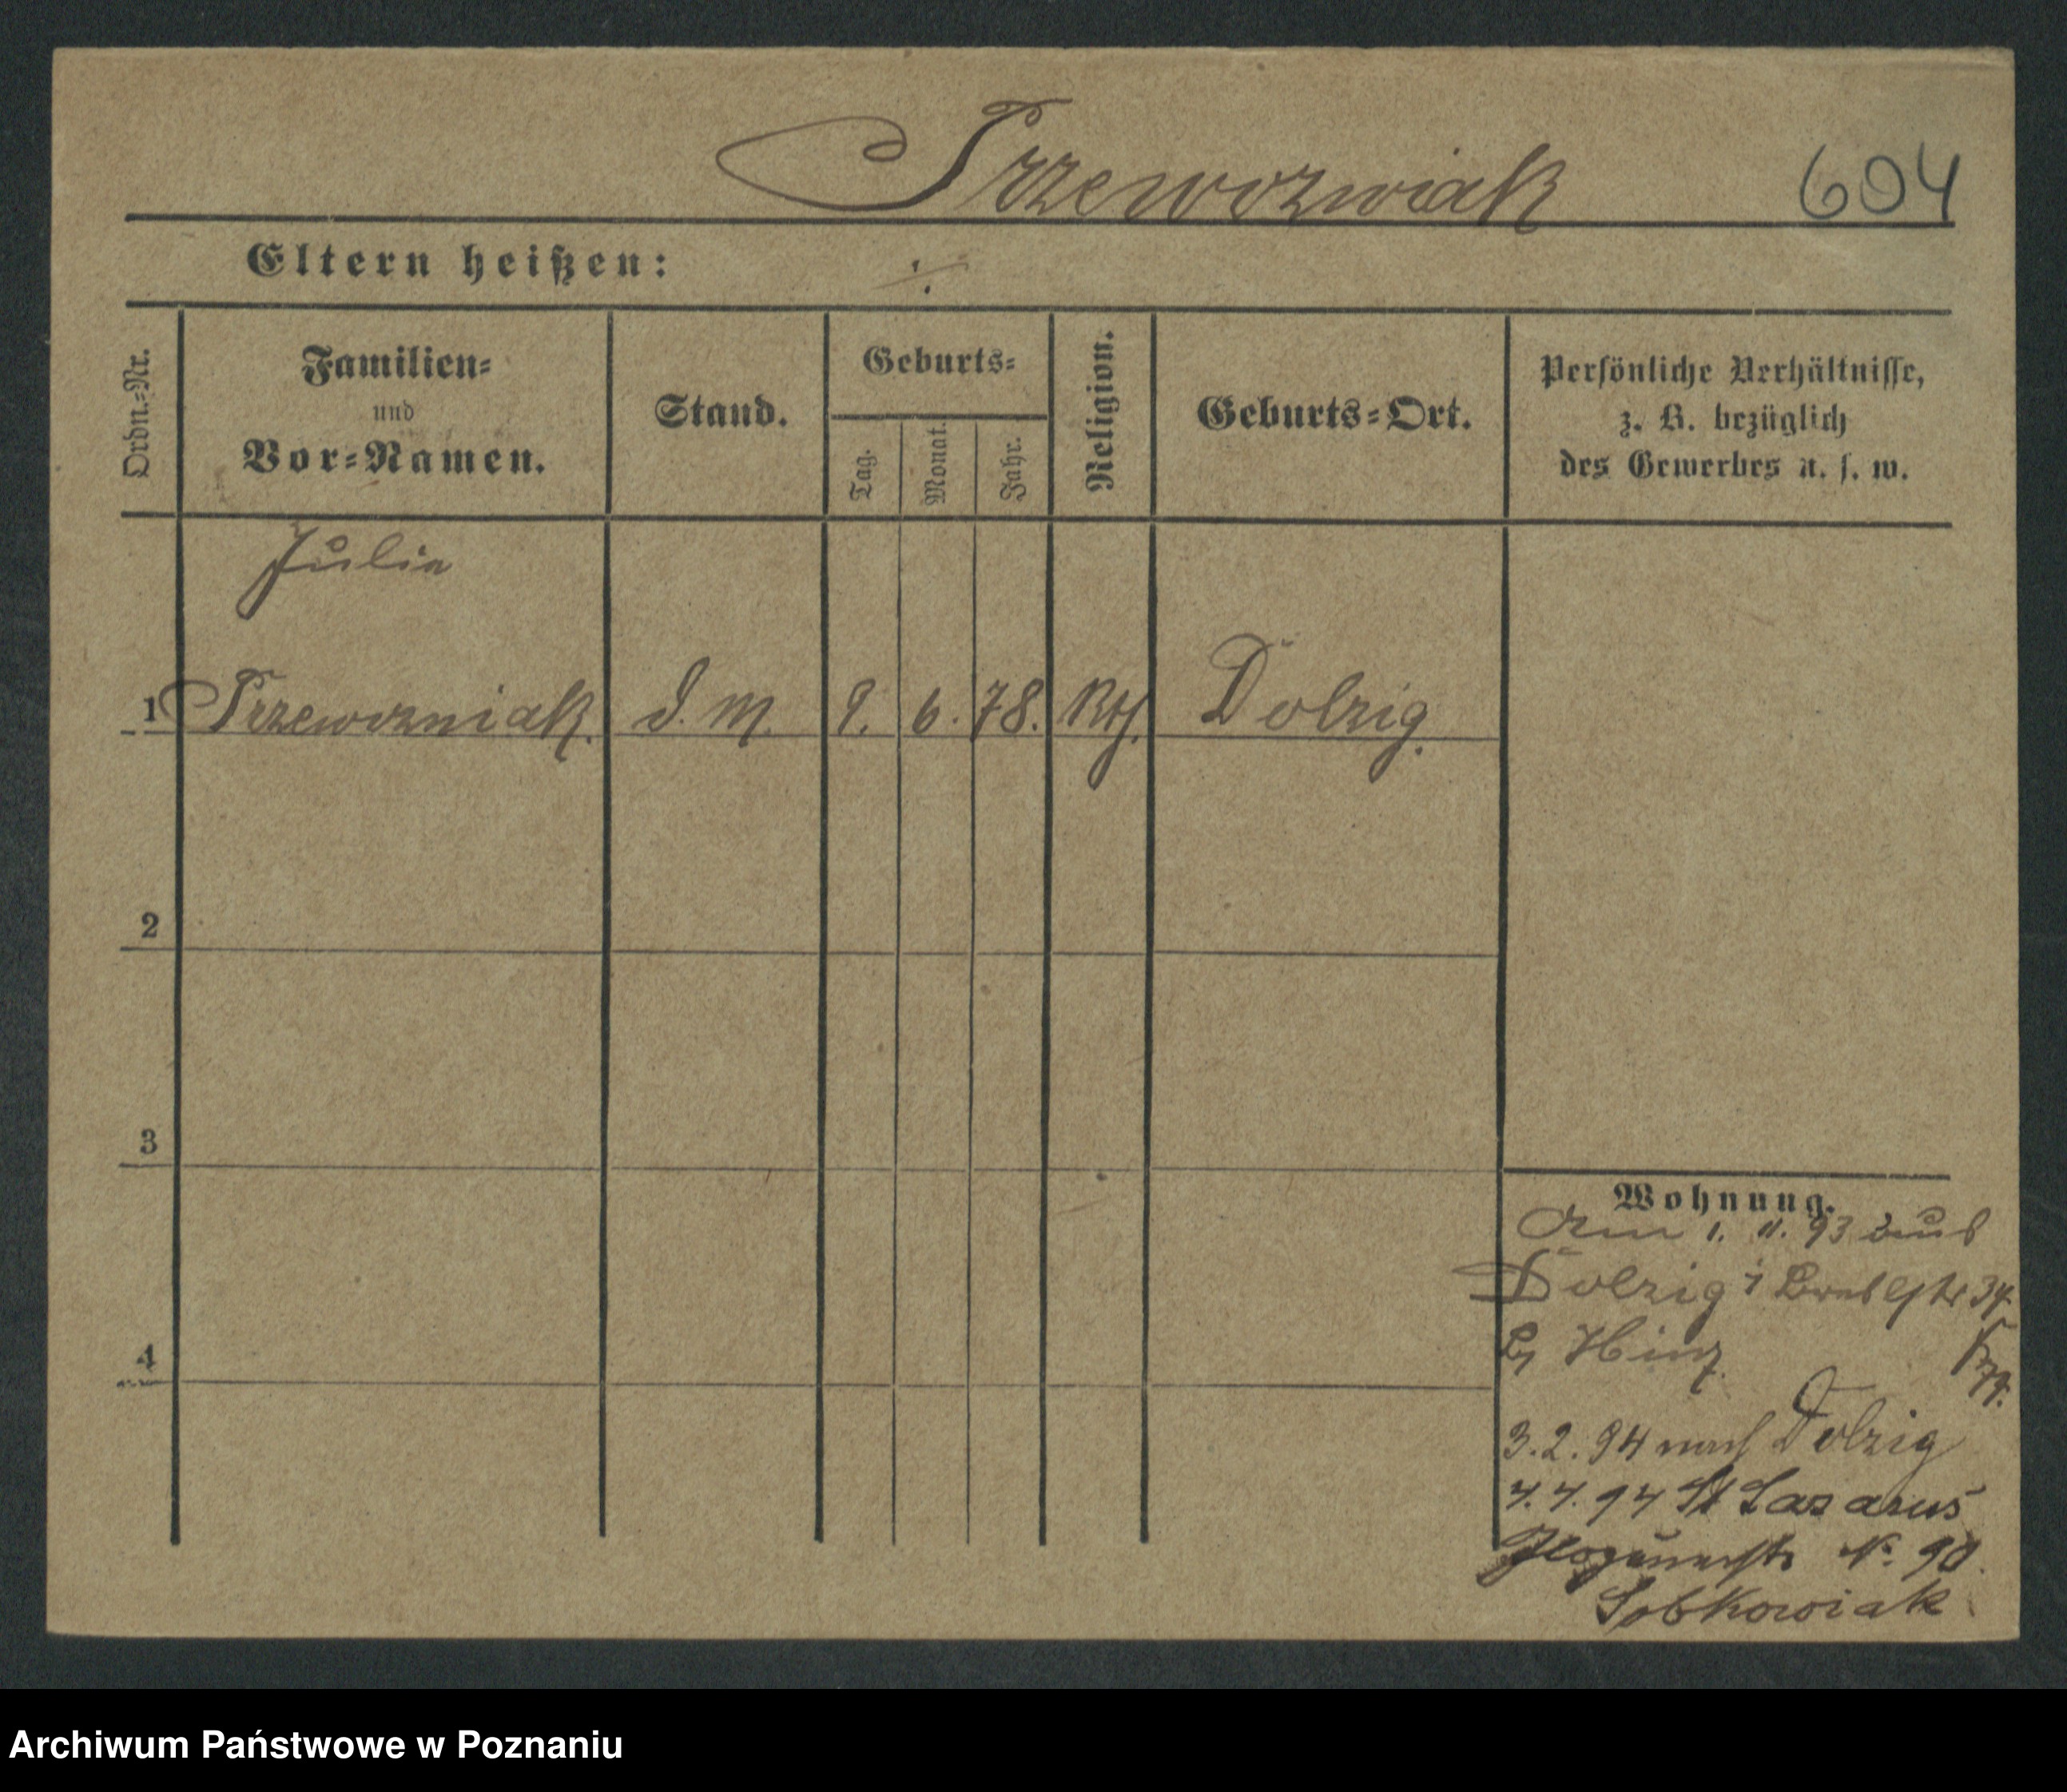 Przewozniak 604
Eltern heißen: ./.
Ordn.-Nr.
Familien-
und
Vor-Namen.
Stand.
Geburts-
Tag.
Monat.
Jahr.
Religion.
Geburts-Ort.
Persönliche Verhältnisse,
z. B. bezüglich
des Gewerbes u. s. w.
Julia
1 Przewozniak. D. M. 9. 6. 78. Kth. Dolzig.
2
3
4
Wohnung.
Am 1. 11. 93 aus
Dolzig 34.
b/ Hinz
3.2.94 nach Dolzig
4.4.94 St Lazarus
No. 90.
Sobkowiak
Archiwum Państwowe w Poznaniu